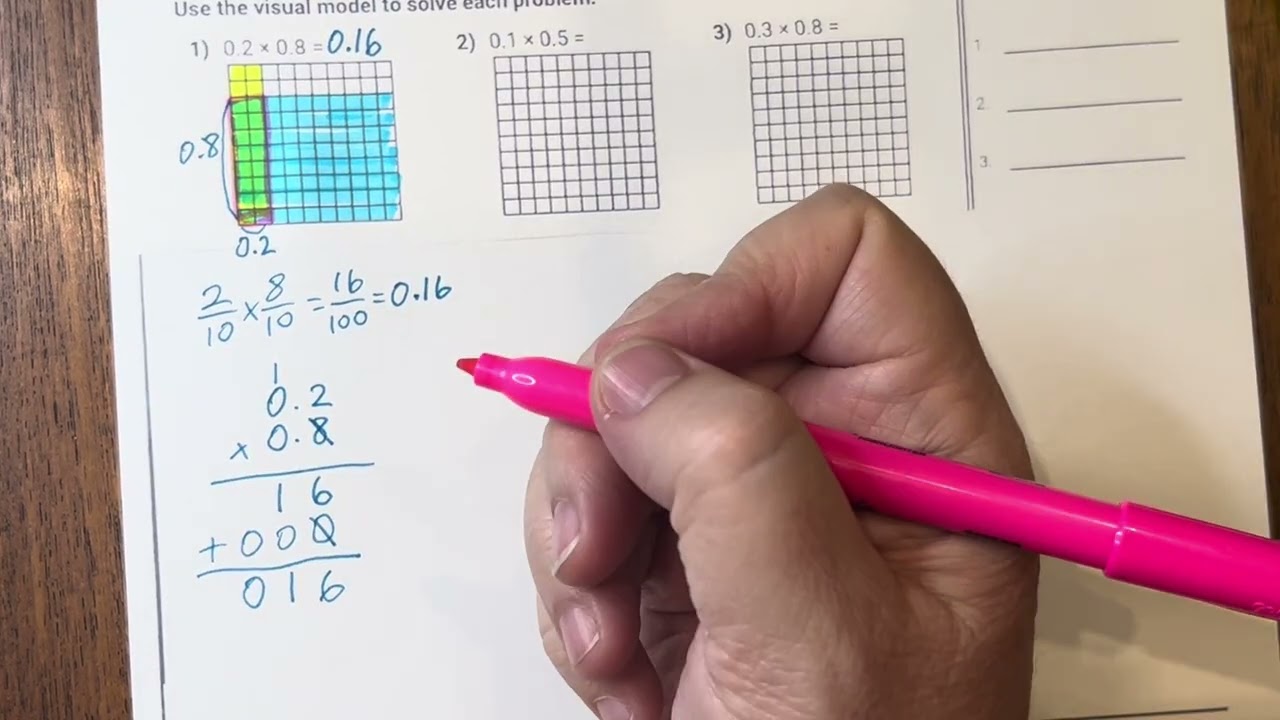 Use the visual model to solve each problem.
1) 0.2 × 0.8 = 0.16
2) 0.1 × 0.5 =
3) 0.3 × 0.8 =
1
2.
3.
0.8
0.2
2/10 × 8/10 = 16/100 = 0.16
1
0.2
× 0.8
1 6
+ 0 0 0
0 1 6